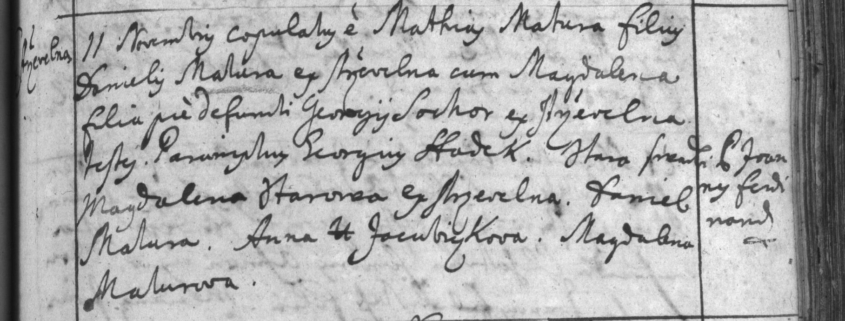 Střevelna
11 Novembris copulatus è Mathius Matura filius
Danielis Matura ex Střevelna cum Magdalena
filia piè defuncti Georgij Sochor ex Střevelna
Testes. Paranymphus Georgius Hladek. Stara
Magdalena Starowa ex Střevelna. Daniel
Matura. Anna Jacubickova. Magdalena
Maturova.
P Joan
nes Ferdi
nand